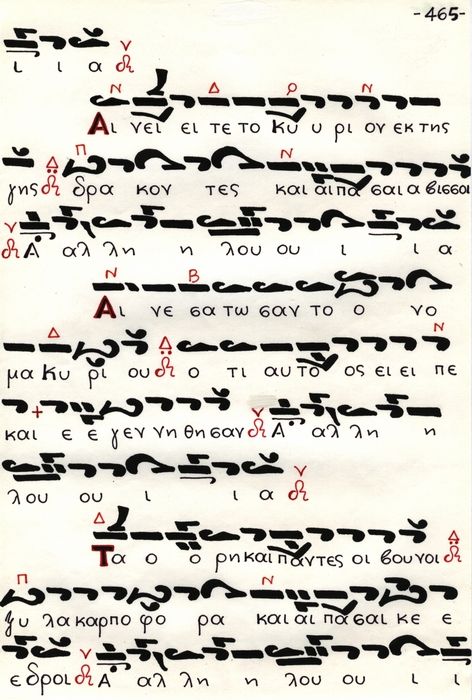 -465-
ι ι α
Αι νει ει τε το Κυ υ ρι ον εκ της
γης δρα κον τες και αι πα σαι α βισσοι
Α αλ λη η λου ου ι ι α
Αι νε σα τω σαν το ο νο
μα Κυ ρι ου ο τι αυ το ος ει ει πε
και ε ε γεν νη θη σαν Α αλ λη η
λου ου ι ι α
Τα ο ο ρη και πα ντες οι βου νοι
ξυ λα καρ πο φο ρα και αι πα σαι κε ε
ε δροι Α αλ λη η λου ου ι ι